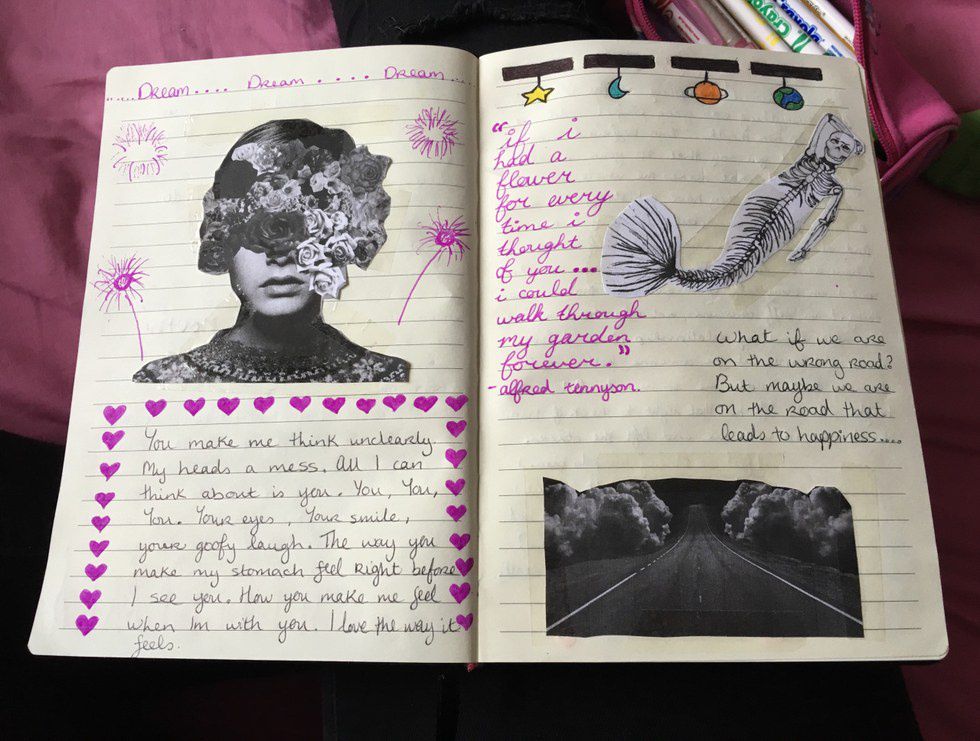 ..... Dream .... Dream .... Dream ....
You make me think unclearly.
My heads a mess. All I can
think about is you. You, You,
You. Your eyes, Your smile,
your goofy laugh. The way you
make my stomach feel Right before
I see you. How you make me feel
when Im with you. I love the way it
feels.
"if i
had a
flower
for every
time i
thought
of you ...
i could
walk through
my garden
forever."
- alfred tennyson.
What if we are
on the wrong road?
But maybe we are
on the road that
leads to happiness....
Crayola